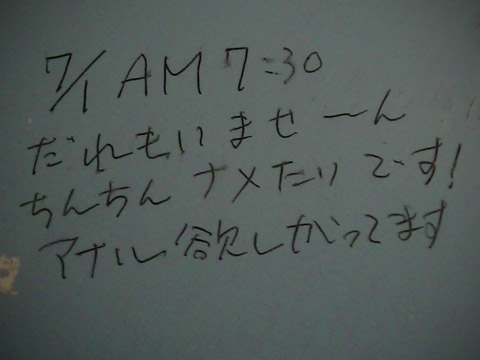 7/1 AM 7:30
だれもいませーん
ちんちんナメたいです!
アナル欲しがってます